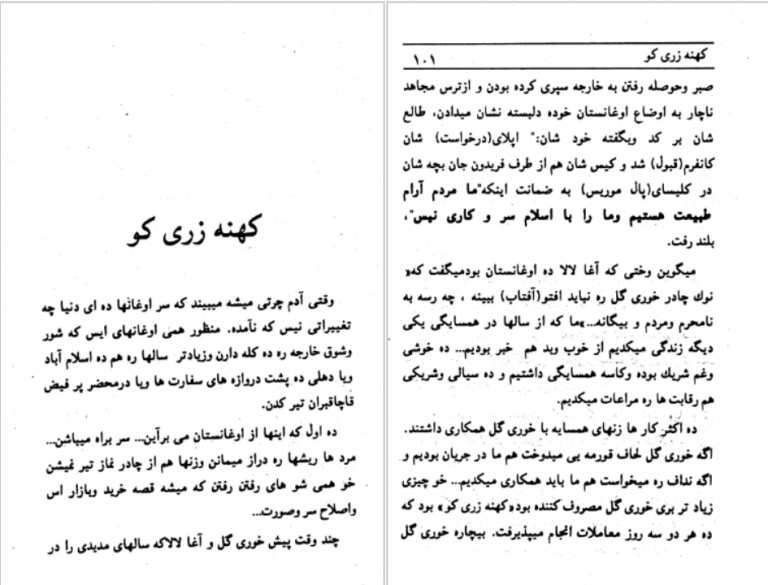 کهنه زری کو
وقتی آدم چرتی میشه میبیند که سر اوغانها ده ای دنیا چه
تغییراتی نیس که نآمده. منظور همی اوغانهای ایس که شور
وشوق خارجه ره ده کله دارن وزیادتر سالها ره هم ده اسلام آباد
ویا دهلی ده پشت دروازه های سفارت ها ویا درمحضر پر فیض
قاچاقبران تیر کدن.
ده اول که اینها از اوغانستان می برآین... سر براه میباشن...
مرد ها ریشها ره دراز میمانن وزنها هم از چادر نماز تیر نمیشن
خو همی شو های رفتن رفتن که میشه قصه خرید وبازار اس
واصلاح سر وصورت...
چند وقت پیش خوری گل و آغا لالاکه سالهای مدیدی را در
کهنه زری کو
۱۰۱
صبر وحوصله رفتن به خارجه سپری کرده بودن و ازترس مجاهد
ناچار به اوضاع اوغانستان خوده دلبسته نشان میدادن، طالع
شان بر کد وبگفته خود شان:" اپلای(درخواست) شان
کانفرم(قبول) شد و کیس شان هم از طرف فریدون جان بچه شان
در کلیسای(پال موریس) به ضمانت اینکه"ما مردم آرام
طبیعت هستیم وما را با اسلام سر و کاری نیس"،
بلند رفت.
میگوین وختی که آغا لالا ده اوغانستان بودمیگفت که«
نوك چادر خوری گل ره نباید افتو(آفتاب) ببینه ، چه رسه به
نامحرم ومردم و بیگانه...»ما که از سالها در همسایگی یکی
دیگه زندگی میکدیم از خوب وبد هم خبر بودیم... ده خوشی
وغم شریك بوده وکاسه همسایگی داشتیم و ده سیالی وشریکی
هم رقابت ها ره مراعات میکدیم.
ده اکثر کار ها زنهای همسایه با خوری گل همکاری داشتند.
اگه خوری گل لحاف قورمه یی میدوخت هم ما در جریان بودیم و
اگه نداف ره میخواست هم ما باید همکاری میکدیم... خو چیزی
زیاد تر بری خوری گل مصروف کننده بود«کهنه زری کو» بود که
ده هر دو سه روز معاملات انجام میپذیرفت. بیچاره خوری گل